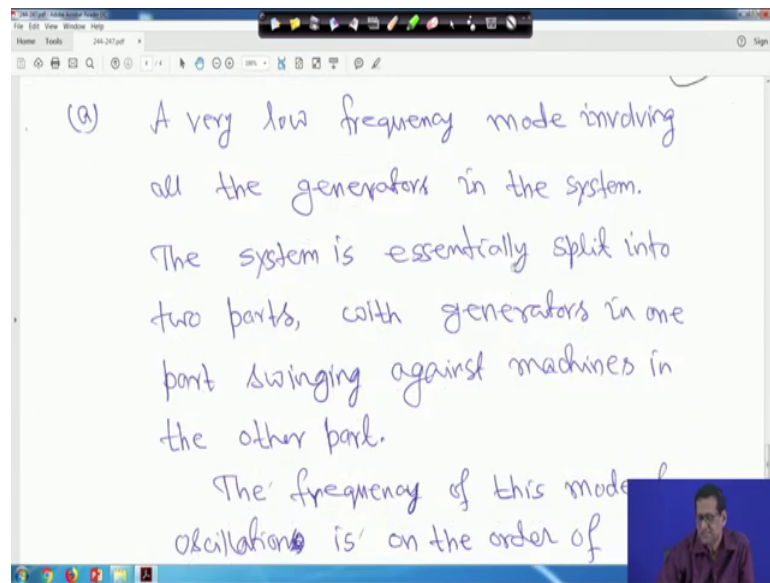 244-247.pdf - Adobe Acrobat Reader DC
File Edit View Window Help
Home Tools 244-247.pdf × Sign
(a) A very low frequency mode involving
all the generators in the system.
The system is essentially split into
two parts, with generators in one
part swinging against machines in
the other part.
The frequency of this mode
oscillations is on the order of